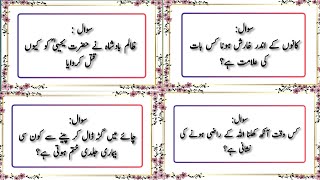 سوال:
کانوں کے اندر خارش ہونا کس بات
کی علامت ہے؟
سوال:
ظالم بادشاہ نے حضرت یحییٰؑ کو کیوں
قتل کروایا
سوال:
کس وقت آنکھ کھلنا اللہ کے راضی ہونے کی
نشانی ہے؟
سوال:
چائے میں گڑ ڈال کر پینے سے کون سی
بیماری جلدی ختم ہوتی ہے؟